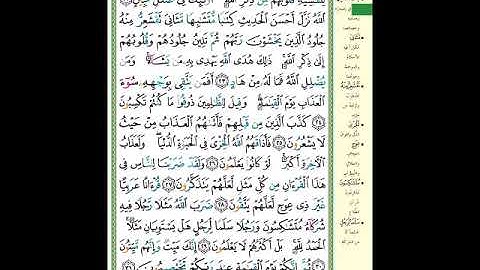 لِّلْقَٰسِيَةِ قُلُوبُهُم مِّن ذِكْرِ ٱللَّهِ أُو۟لَٰٓئِكَ فِى ضَلَٰلٍ مُّبِينٍ
ٱللَّهُ نَزَّلَ أَحْسَنَ ٱلْحَدِيثِ كِتَٰبًا مُّتَشَٰبِهًا مَّثَانِىَ تَقْشَعِرُّ مِنْهُ
جُلُودُ ٱلَّذِينَ يَخْشَوْنَ رَبَّهُمْ ثُمَّ تَلِينُ جُلُودُهُمْ وَقُلُوبُهُمْ
إِلَىٰ ذِكْرِ ٱللَّهِ ذَٰلِكَ هُدَى ٱللَّهِ يَهْدِى بِهِۦ مَن يَشَآءُ وَمَن
يُضْلِلِ ٱللَّهُ فَمَا لَهُۥ مِنْ هَادٍ ٢٣ أَفَمَن يَتَّقِى بِوَجْهِهِۦ سُوٓءَ
ٱلْعَذَابِ يَوْمَ ٱلْقِيَٰمَةِ وَقِيلَ لِلظَّٰلِمِينَ ذُوقُوا۟ مَا كُنتُمْ تَكْسِبُونَ
٢٤ كَذَّبَ ٱلَّذِينَ مِن قَبْلِهِمْ فَأَتَىٰهُمُ ٱلْعَذَابُ مِنْ حَيْثُ
لَا يَشْعُرُونَ ٢٥ فَأَذَاقَهُمُ ٱللَّهُ ٱلْخِزْىَ فِى ٱلْحَيَوٰةِ ٱلدُّنْيَا وَلَعَذَابُ
ٱلْءَاخِرَةِ أَكْبَرُ لَوْ كَانُوا۟ يَعْلَمُونَ ٢٦ وَلَقَدْ ضَرَبْنَا لِلنَّاسِ فِى
هَٰذَا ٱلْقُرْءَانِ مِن كُلِّ مَثَلٍ لَّعَلَّهُمْ يَتَذَكَّرُونَ ٢٧ قُرْءَانًا عَرَبِيًّا
غَيْرَ ذِى عِوَجٍ لَّعَلَّهُمْ يَتَّقُونَ ٢٨ ضَرَبَ ٱللَّهُ مَثَلًا رَّجُلًا فِيهِ
شُرَكَآءُ مُتَشَٰكِسُونَ وَرَجُلًا سَلَمًا لِّرَجُلٍ هَلْ يَسْتَوِيَانِ مَثَلًا
ٱلْحَمْدُ لِلَّهِ بَلْ أَكْثَرُهُمْ لَا يَعْلَمُونَ ٢٩ إِنَّكَ مَيِّتٌ وَإِنَّهُم مَّيِّتُونَ
٣٠ ثُمَّ إِنَّكُمْ يَوْمَ ٱلْقِيَٰمَةِ عِندَ رَبِّكُمْ تَخْتَصِمُونَ ٣١